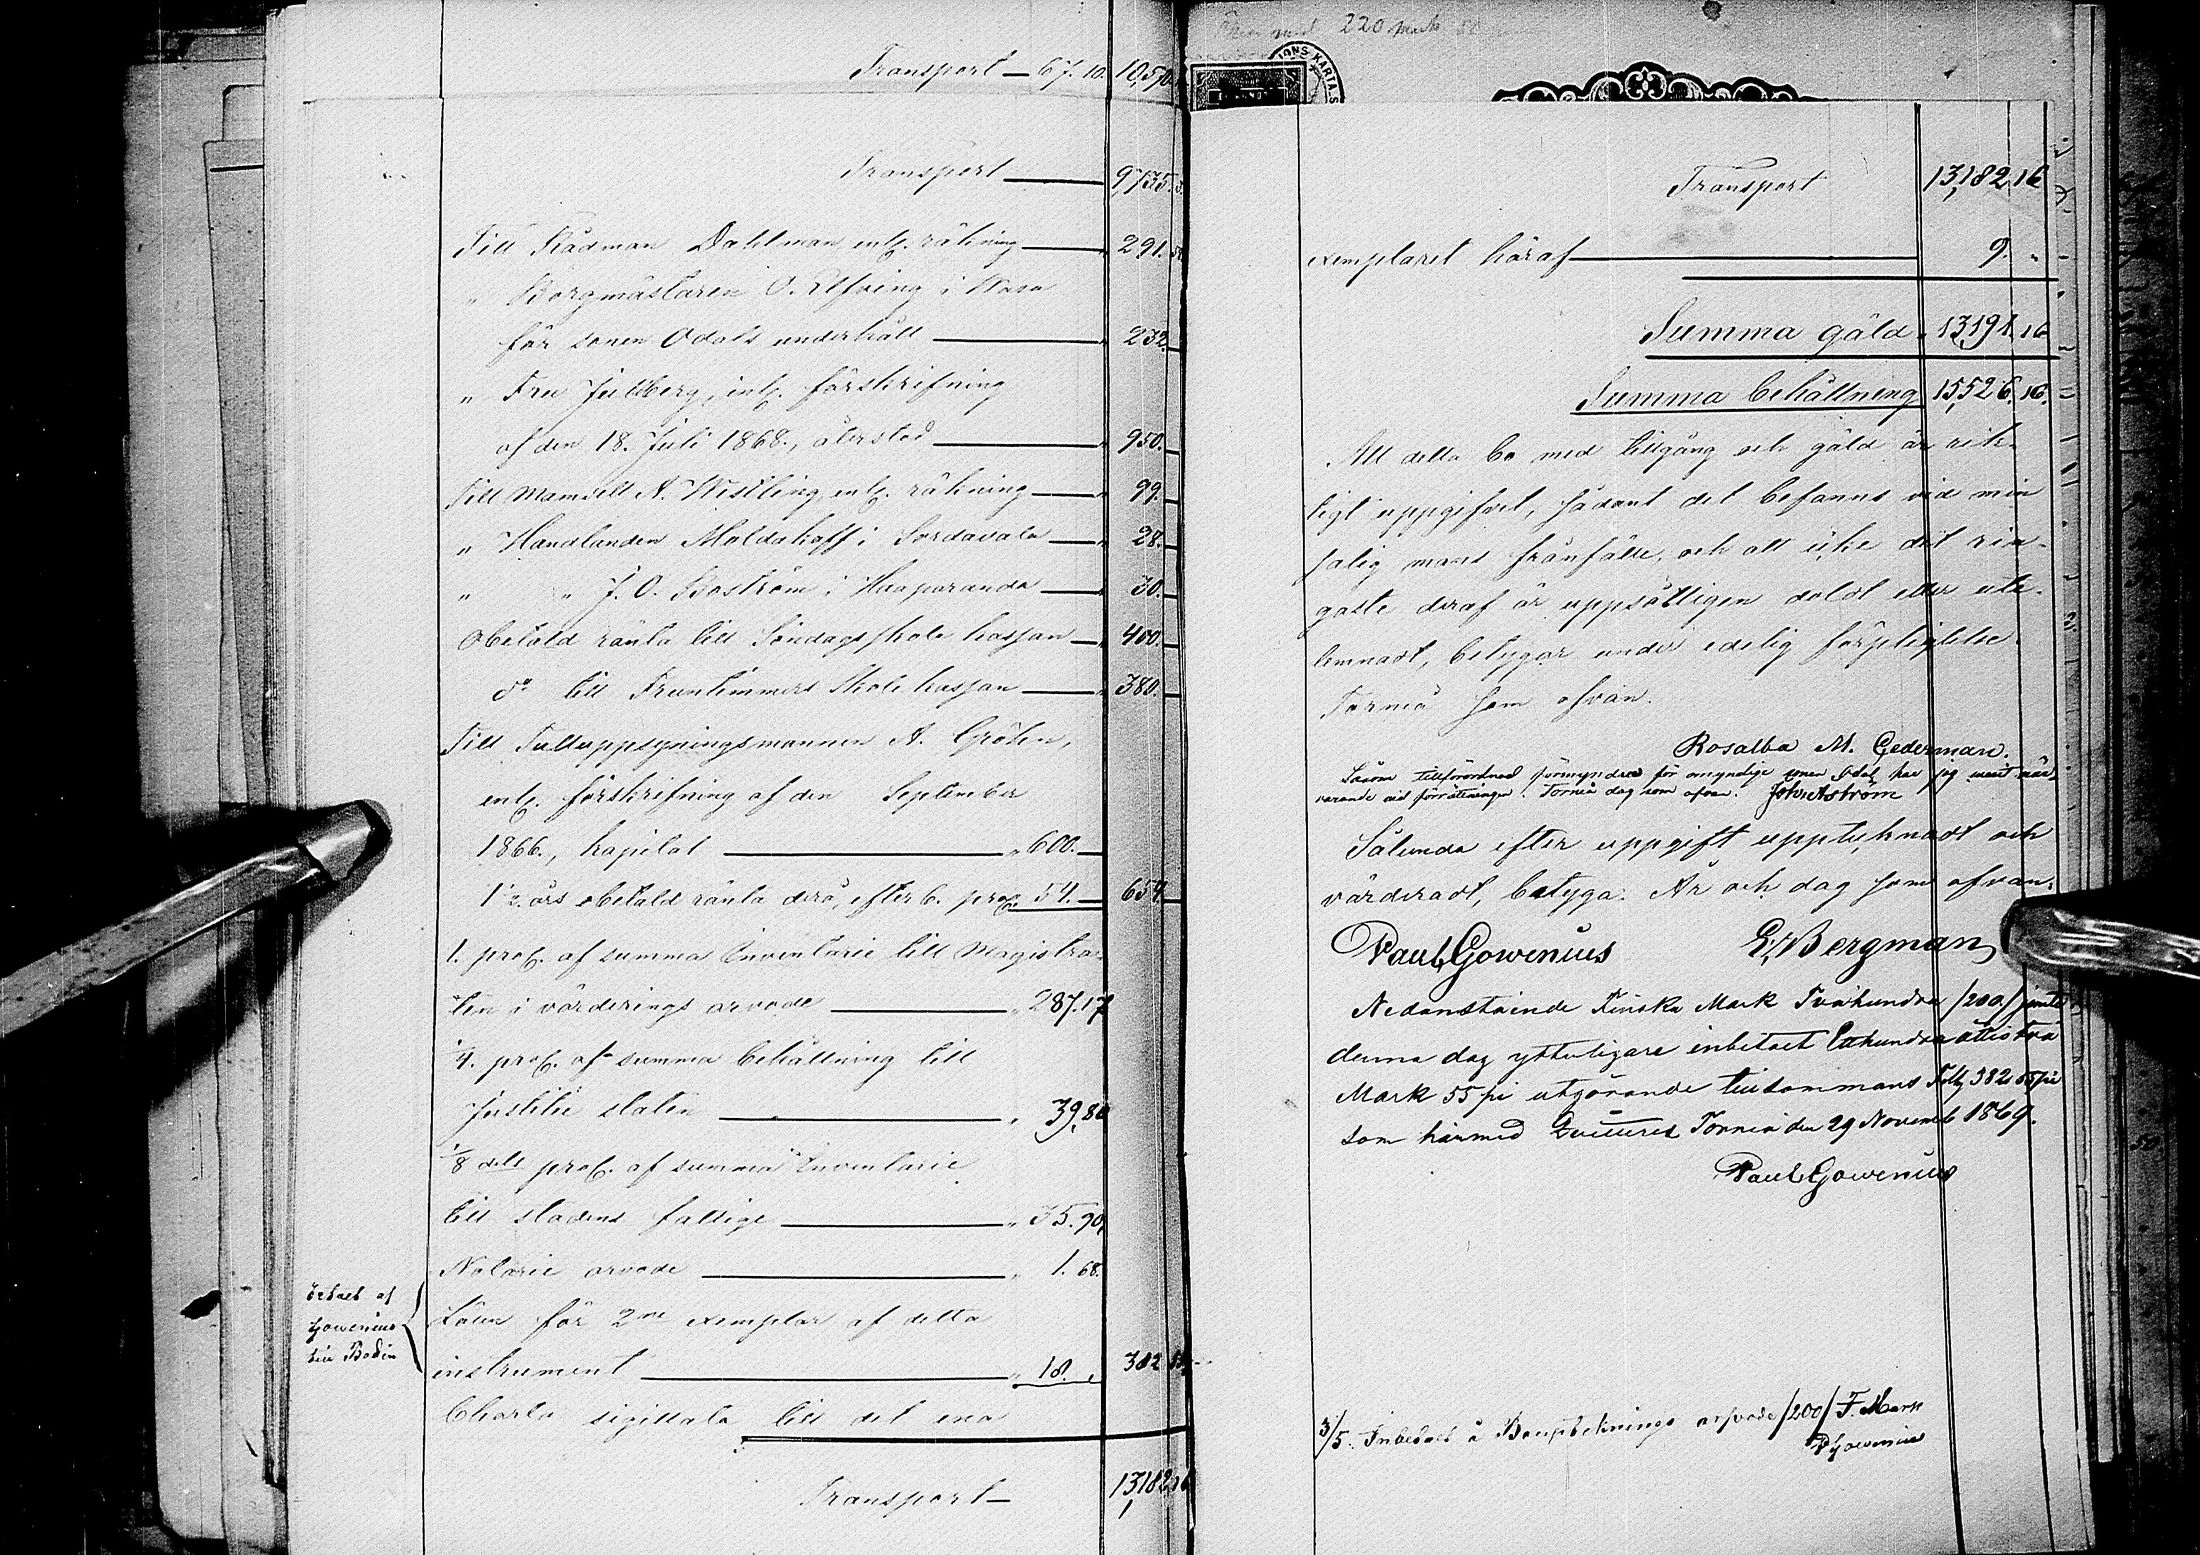 Transport — 67. 10. 10,570
Transport — 9,735.
Till Rådman Dahlman enl. räkning — " 291. 50
" Borgmästaren O. Elfving i Wasa
för sonen Odals underhåll — " 232. —
" Fru Jullberg, enl. förskrifning
af den 18. Juli 1868., återstod — " 950. —
Till Mamsell A. Westling enl. räkning — " 99. —
" Handlanden Moldakoff i Sordavala — " 28. —
" " J. O. Boström i Haaparanda — " 30. —
Obetald ränta till Söndagsskole kassan — " 400. —
do till Fruntimmers Skole kassan — " 380. —
Till Tulluppsyningsmannen A. Gröhn,
enl. förskrifning af den September
1866., kapital — " 600. —
1½ års obetald ränta derå, efter 6. proC. 54. — 654. —
1. proC. af summa Inventarie till Magistra-
ten i värderings arvode — " 287.17
¼. proC. af summa behållning till
Justitie staten — " 39,80
⅛ dels proC. af summa Inventarie
till stadens fattige — " 35. 90,
Notarie arvode — " 1. 68.
Lösen för 2ne exemplar af detta
instrument — " 18. " 382 55
Erhålt af
Gowenius
Charta sigillata till det ena
Transport — 13,182 16
220 mark 50
Transport 13,182 16
exemplaret häraf — 9. "
Summa gäld. 13,191. 16
Summa behållning 15,526. 16.
Att detta bo med tillgång och gäld är rik-
tigt uppgifvet, sådant det befanns vid min
salig mans frånfälle, och att icke det rin-
gaste deraf är uppsåtligen doldt eller ute-
lemnadt, betygar under edelig förpligtelse.
Torneå som ofvan.
Rosalba M. Cederman.
Såsom tillförordnad förmyndare för omyndige sonen Odal har jag varit när-
varande vid förrättningen. Torneå dag som ofvan. Joh. Åström
Sålunda efter uppgift upptecknadt och
värderadt, betyga. År och dag som ofvan.
Paul Gowenius E. Bergman
Nedanstående Finska Mark Tvåhundra /200/ jemte
denna dag ytterligare inbetalt Etthundra åttiotvå
Mark 55 pi utgörande tillsammans FMk 382 55 pi
som härmed Qvitteres Torneå den 29 Novemb 1869.
Paul Gowenius
3/5. Inbetalt å Bouptecknings arfvode /200/ F. Mark
P Gowenius